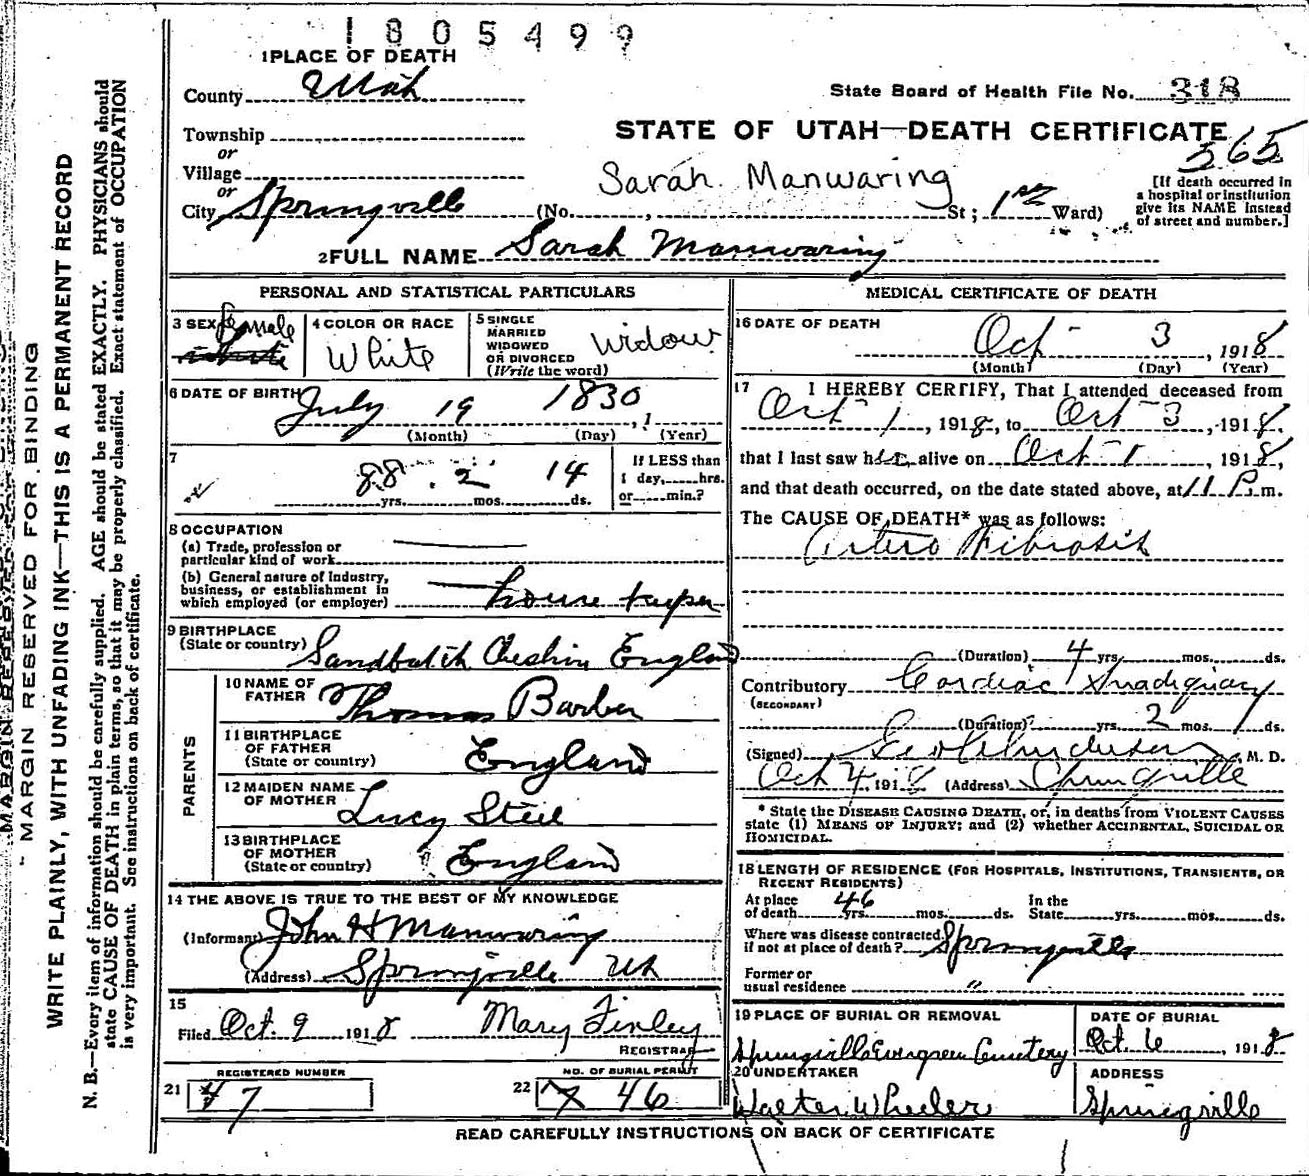 1805499
1 PLACE OF DEATH
County Utah
State Board of Health File No. 318
Township
STATE OF UTAH—DEATH CERTIFICATE
565
or
Village
or
Sarah Manwaring
[If death occurred in
a hospital or institution
give its NAME instead
of street and number.]
City Springville (No. , St ; 1st Ward)
2 FULL NAME Sarah Manwaring
PERSONAL AND STATISTICAL PARTICULARS
3 SEX female
4 COLOR OR RACE
White
5 SINGLE
MARRIED
WIDOWED
OR DIVORCED
(Write the word)
Widow
6 DATE OF BIRTH
July 19 1830, 1
(Month) (Day) (Year)
7
88 yrs. 2 mos. 14 ds.
If LESS than
1 day, hrs.
or min.?
8 OCCUPATION
(a) Trade, profession or
particular kind of work
(b) General nature of Industry,
business, or establishment in
which employed (or employer) house keeper
9 BIRTHPLACE
(State or country) Sandbatch Cheshire England
PARENTS
10 NAME OF
FATHER Thomas Barber
11 BIRTHPLACE
OF FATHER
(State or country) England
12 MAIDEN NAME
OF MOTHER Lucy Steel
13 BIRTHPLACE
OF MOTHER
(State or country) England
14 THE ABOVE IS TRUE TO THE BEST OF MY KNOWLEDGE
(Informant) John H Manwaring
(Address) Springville Ut
15
Filed Oct. 9 1918 Mary Finley
REGISTRAR
REGISTERED NUMBER
21 47
NO. OF BURIAL PERMIT
22 46
MEDICAL CERTIFICATE OF DEATH
16 DATE OF DEATH
Oct 3, 1918
(Month) (Day) (Year)
17 I HEREBY CERTIFY, That I attended deceased from
Oct 1, 1918, to Oct 3, 1918,
that I last saw her alive on Oct 1, 1918,
and that death occurred, on the date stated above, at 11 P.m.
The CAUSE OF DEATH* was as follows:
Artero Fibrosis
(Duration) 4 yrs. mos. ds.
Contributory Cardiac Inadequacy
(SECONDARY)
(Duration) yrs. 2 mos. ds.
(Signed) M. D.
Oct 4, 1918 (Address) Springville
* State the DISEASE CAUSING DEATH, or, in deaths from VIOLENT CAUSES
state (1) MEANS OF INJURY; and (2) whether ACCIDENTAL, SUICIDAL OR
HOMICIDAL.
18 LENGTH OF RESIDENCE (FOR HOSPITALS, INSTITUTIONS, TRANSIENTS, OR
RECENT RESIDENTS)
At place
of death 46 yrs. mos. ds.
In the
State yrs. mos. ds.
Where was disease contracted,
if not at place of death? Springville
Former or
usual residence "
19 PLACE OF BURIAL OR REMOVAL
Springville Evergreen Cemetery
DATE OF BURIAL
Oct. 6, 1918
20 UNDERTAKER
Walter Wheeler
ADDRESS
Springville
READ CAREFULLY INSTRUCTIONS ON BACK OF CERTIFICATE
MARGIN RESERVED FOR BINDING
WRITE PLAINLY, WITH UNFADING INK—THIS IS A PERMANENT RECORD
N. B.—Every item of information should be carefully supplied. AGE should be stated EXACTLY. PHYSICIANS should
state CAUSE OF DEATH in plain terms, so that it may be properly classified. Exact statement of OCCUPATION
is very important. See instructions on back of certificate.